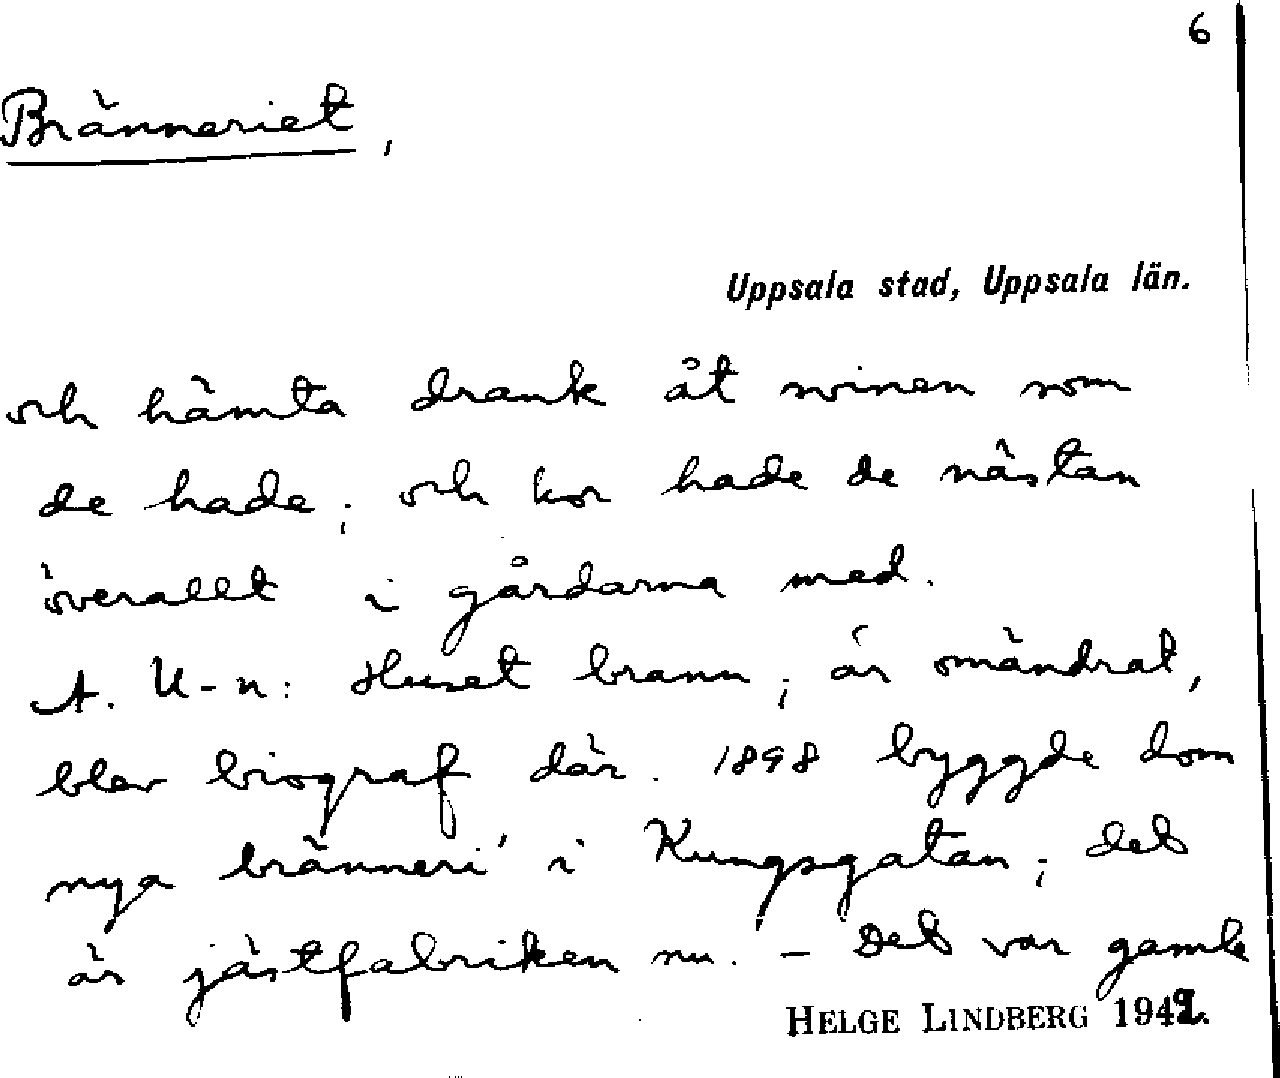 6
Bränneriet,
Uppsala stad, Uppsala län.
och hämta drank åt svinen som
de hade; och kor hade de nästan
överallt i gårdarna med.
A. U-n: Huset brann; är omändrat,
blev biograf där. 1898 byggde dom
nya bränneri i Kungsgatan; det
är jästfabriken nu. – Det var gamle
HELGE LINDBERG 1942.